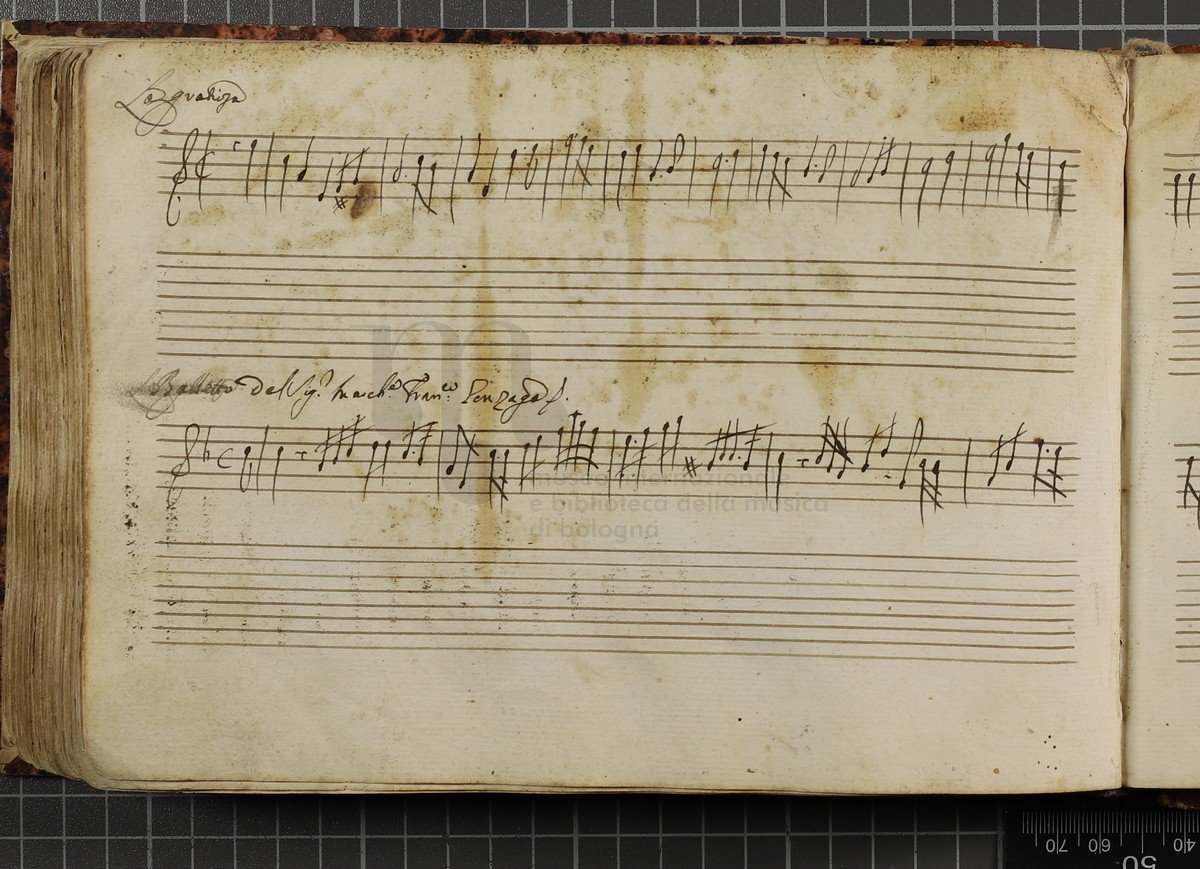 La gratiosa
Balletto del Sig.r March.e Fran.co Gonzaga
museo internazionale
e biblioteca della musica
di bologna
70 60 50 40